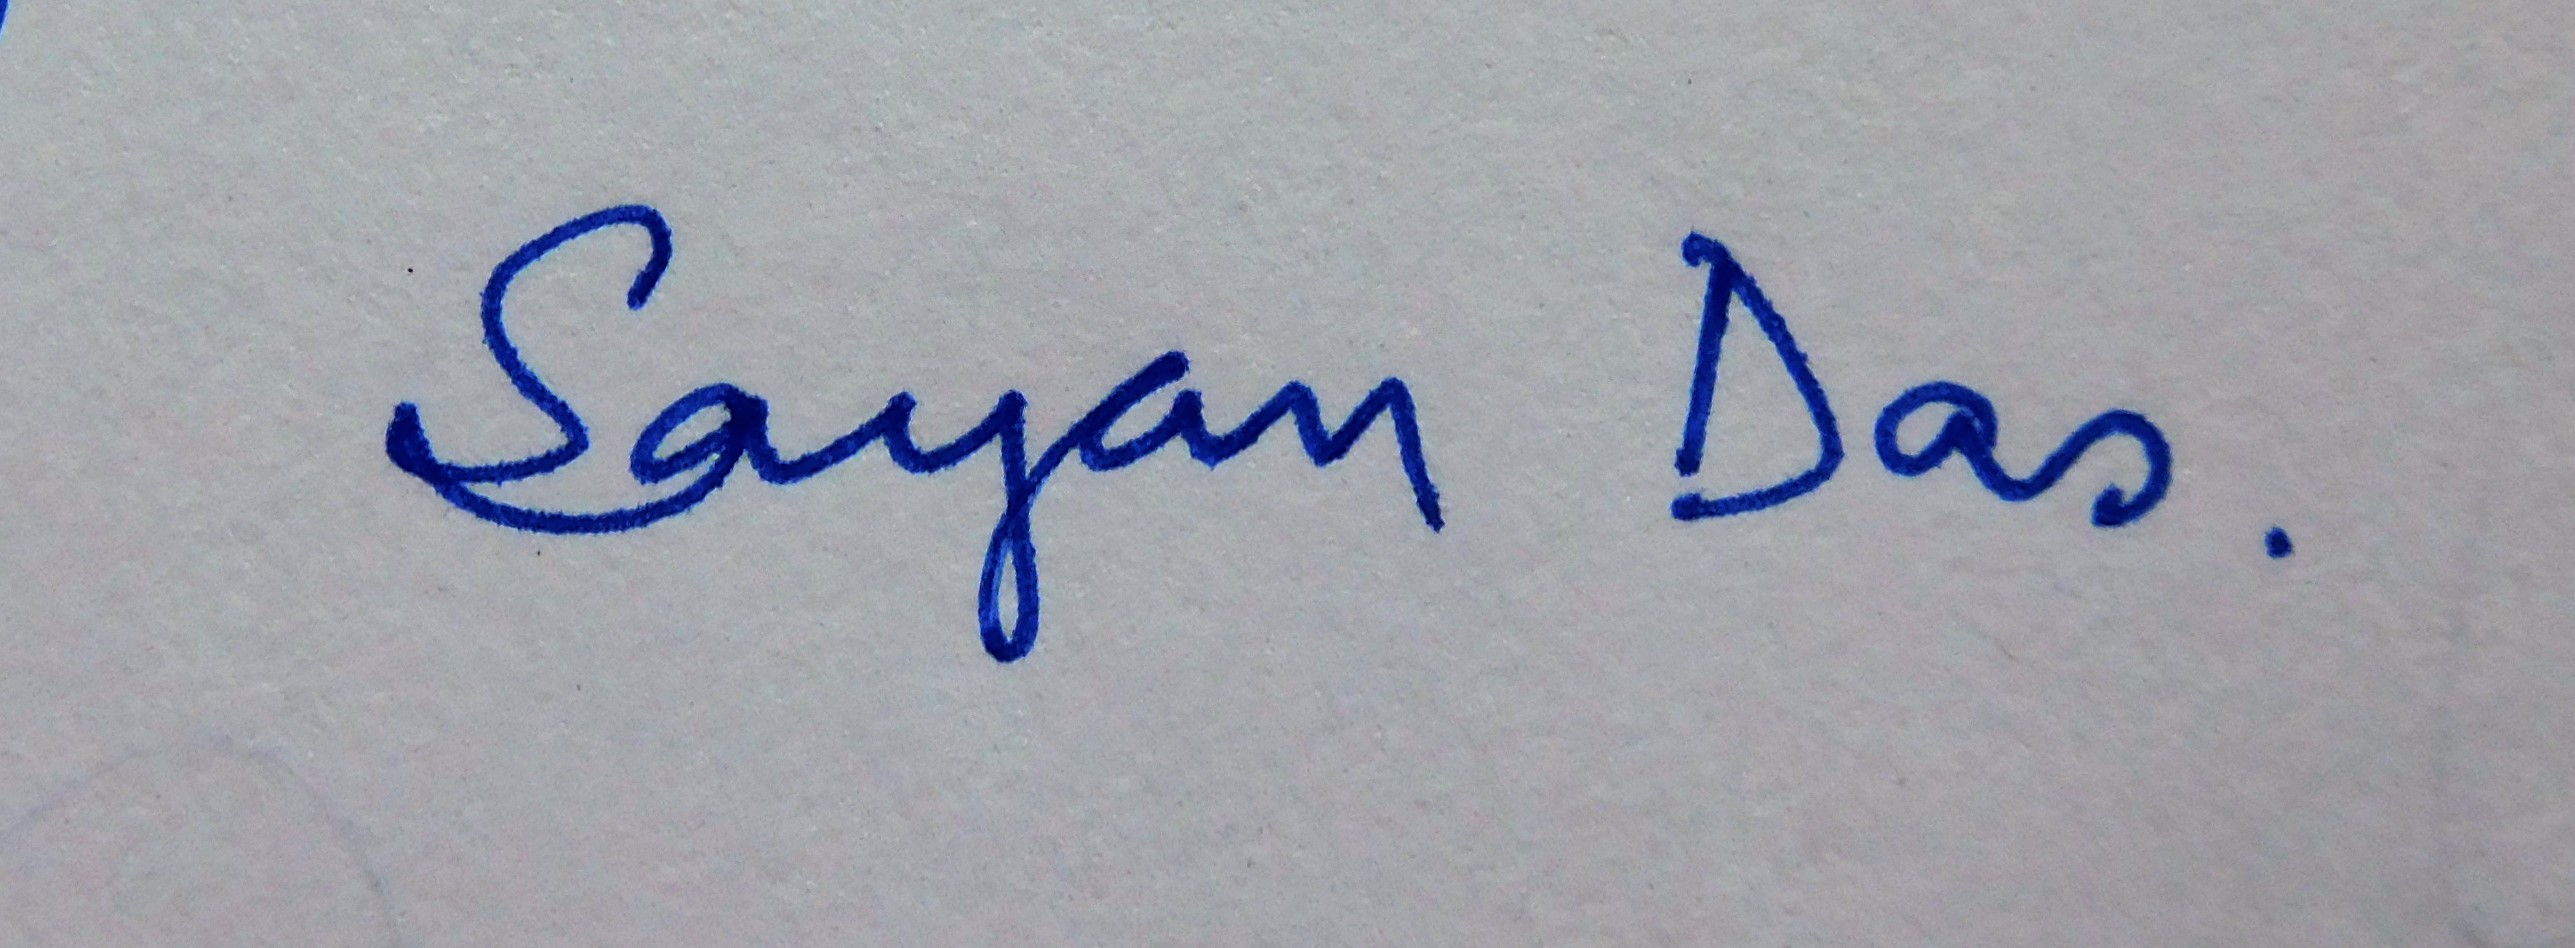 Sayan Das.